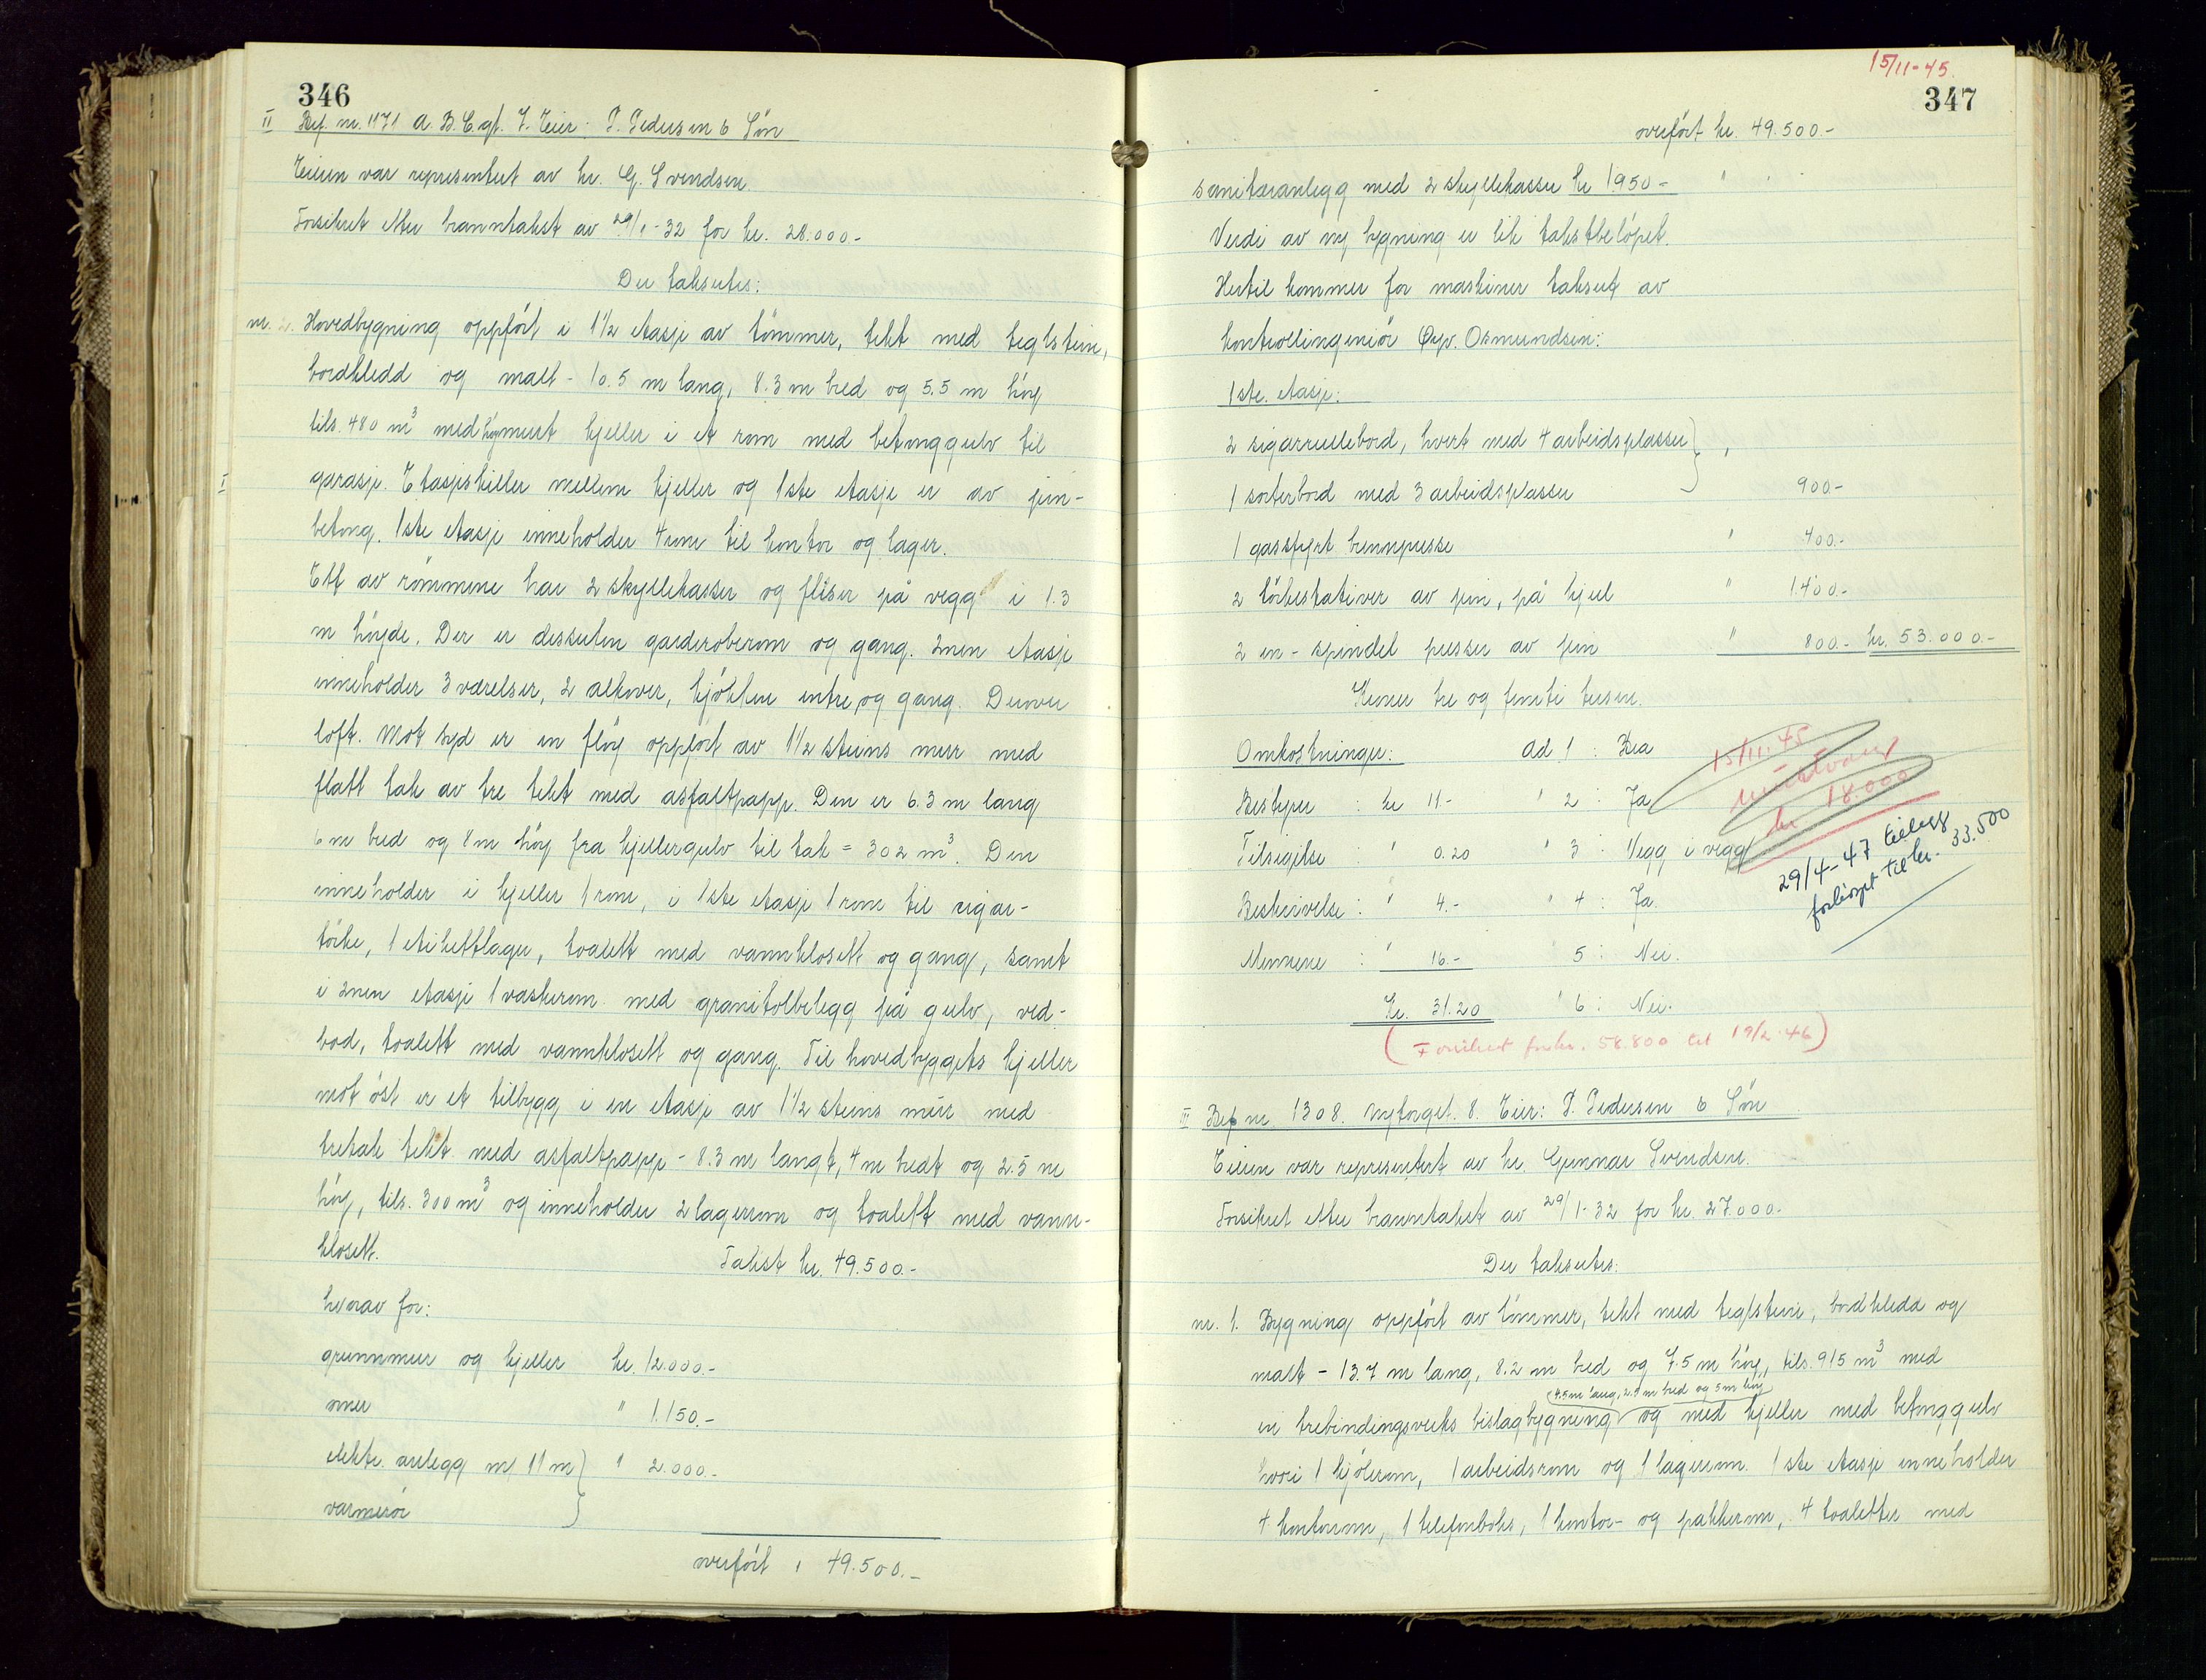 346
II Bef. nr. 1171 A. B. C. gt. 7. Eier: P. Pedersen & Sön
Eieren var representert av hr. G. Svendsen.
Forsikret etter branntakst av 29/1-32 for kr. 28.000.-
Der takseres:
nr. 2. Hovedbygning oppfört i 1½ etasje av tömmer, tekt med teglstein,
bordkledd og malt - 10.5 m lang, 8.3 m bred og 5.5 m höy
tils. 480 m³ med höymurt kjeller i et rom med betonggulv til
I garasje. Etasjeskiller mellem kjeller og 1ste etasje er av jern-
betong. 1ste etasje inneholder 4 rom til kontor og lager.
Ett av rommene har 2 skyllekasser og fliser på vegg i 1.3
m höyde. Der er dessuten garderoberom og gang. 2nen etasje
inneholder 3 værelser, 2 alkover, kjökken entre og gang. Derover
loft. Mot syd er en flöy oppfört av 1½ steins mur med
flatt tak av tre tekt med asfaltpapp. Den er 6.3 m lang
6 m bred og 8 m höy fra kjellergulv til tak = 302 m³. Den
inneholder i kjeller 1 rom, i 1ste etasje 1 rom til sigar-
törke, 1 etikettlager, toalett med vannklosett og gang, samt
i 2nen etasje 1 vaskerom med granitolbelegg på gulv, ved-
bod, toalett med vannklosett og gang. Til hovedbyggets kjeller
mot öst er et tilbygg i en etasje av 1½ steins mur med
tretak tekt med asfaltpapp - 8.3 m langt, 4 m bredt og 2.5 m
höy, tils. 300 m³ og inneholder 2 lagerrom og toalett med vann-
klosett.
Takst kr. 49.500.-
hvorav for:
grunnmur og kjeller kr. 12.000.-
ovner " 1.150.-
elektr. anlegg m/ 11 m } " 2.000.-
varmerör }
overfört " 49.500.-
15/11-45.
347
overfört kr. 49.500.-
sanitæranlegg med 2 skyllekasser kr 1.950.- "
Verdi av ny bygning er lik takstbelöpet.
Hertil kommer for maskiner taksert av
kontrollingeniör Osmundsen:
1ste. etasje:
2 sigarrullebord, hvert med 4 arbeidsplasser }
1 sorterbord med 3 arbeidsplasser } 900.-
1 gassfyrt brennpresse " 400.-
2 törkestativer av jern, på hjul " 1.400.-
2 en-spindel presser av jern " 800.- kr. 53.000.-
Kroner tre og femti tusen.
Omkostninger: Ad 1: Bra
Bestyrer : kr 11.- " 2 : Ja
Tilsigelse : " 0.20 " 3 : Vegg i vegg
Beskrivelse : " 4.- " 4 : Ja.
Mennene : " 16.- " 5 : Nei.
Kr. 31.20 " 6 : Nei.
15/11.45
kr 18.000
29/4-47 tillegg
forhöyet til kr. 33.500
(Forsikret for kr. 58.800 til 19/2-46)
III Bef nr. 1308. Nytorget. 8. Eier: P. Pedersen & Sön
Eieren var representert av hr. Gunnar Svendsen.
Forsikret etter branntakst av 29/1-32 for kr. 27.000.-
Der takseres:
nr. 1. Bygning oppfört av tömmer, tekt med teglstein, bordkledd og
malt - 13.7 m lang, 8.2 m bred og 7.5 m höy, tils. 915 m³ med
(4.5 m lang, 2.5 m bred og 5 m höy)
en trebindingsverks bislagbygning og med kjeller med betonggulv
hvori 1 kjölerom, 1 arbeidsrom og 1 lagerrom. 1ste etasje inneholder
4 kontorrom, 1 telefonboks, 1 kontor- og pakkerom, 4 toaletter med